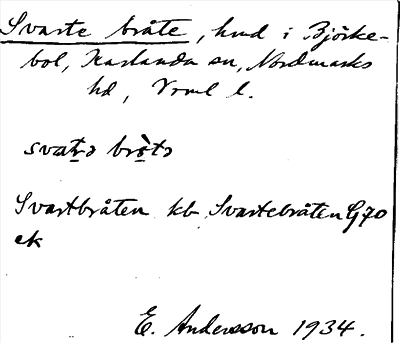 Svarte bråte, hmd i Björke-
bol, Karlanda sn, Nordmarks
hd, Vrml l.
svat̠ə brò̠tə
Svartbråten kb, Svartebråten G70
ek
E. Andersson 1934.